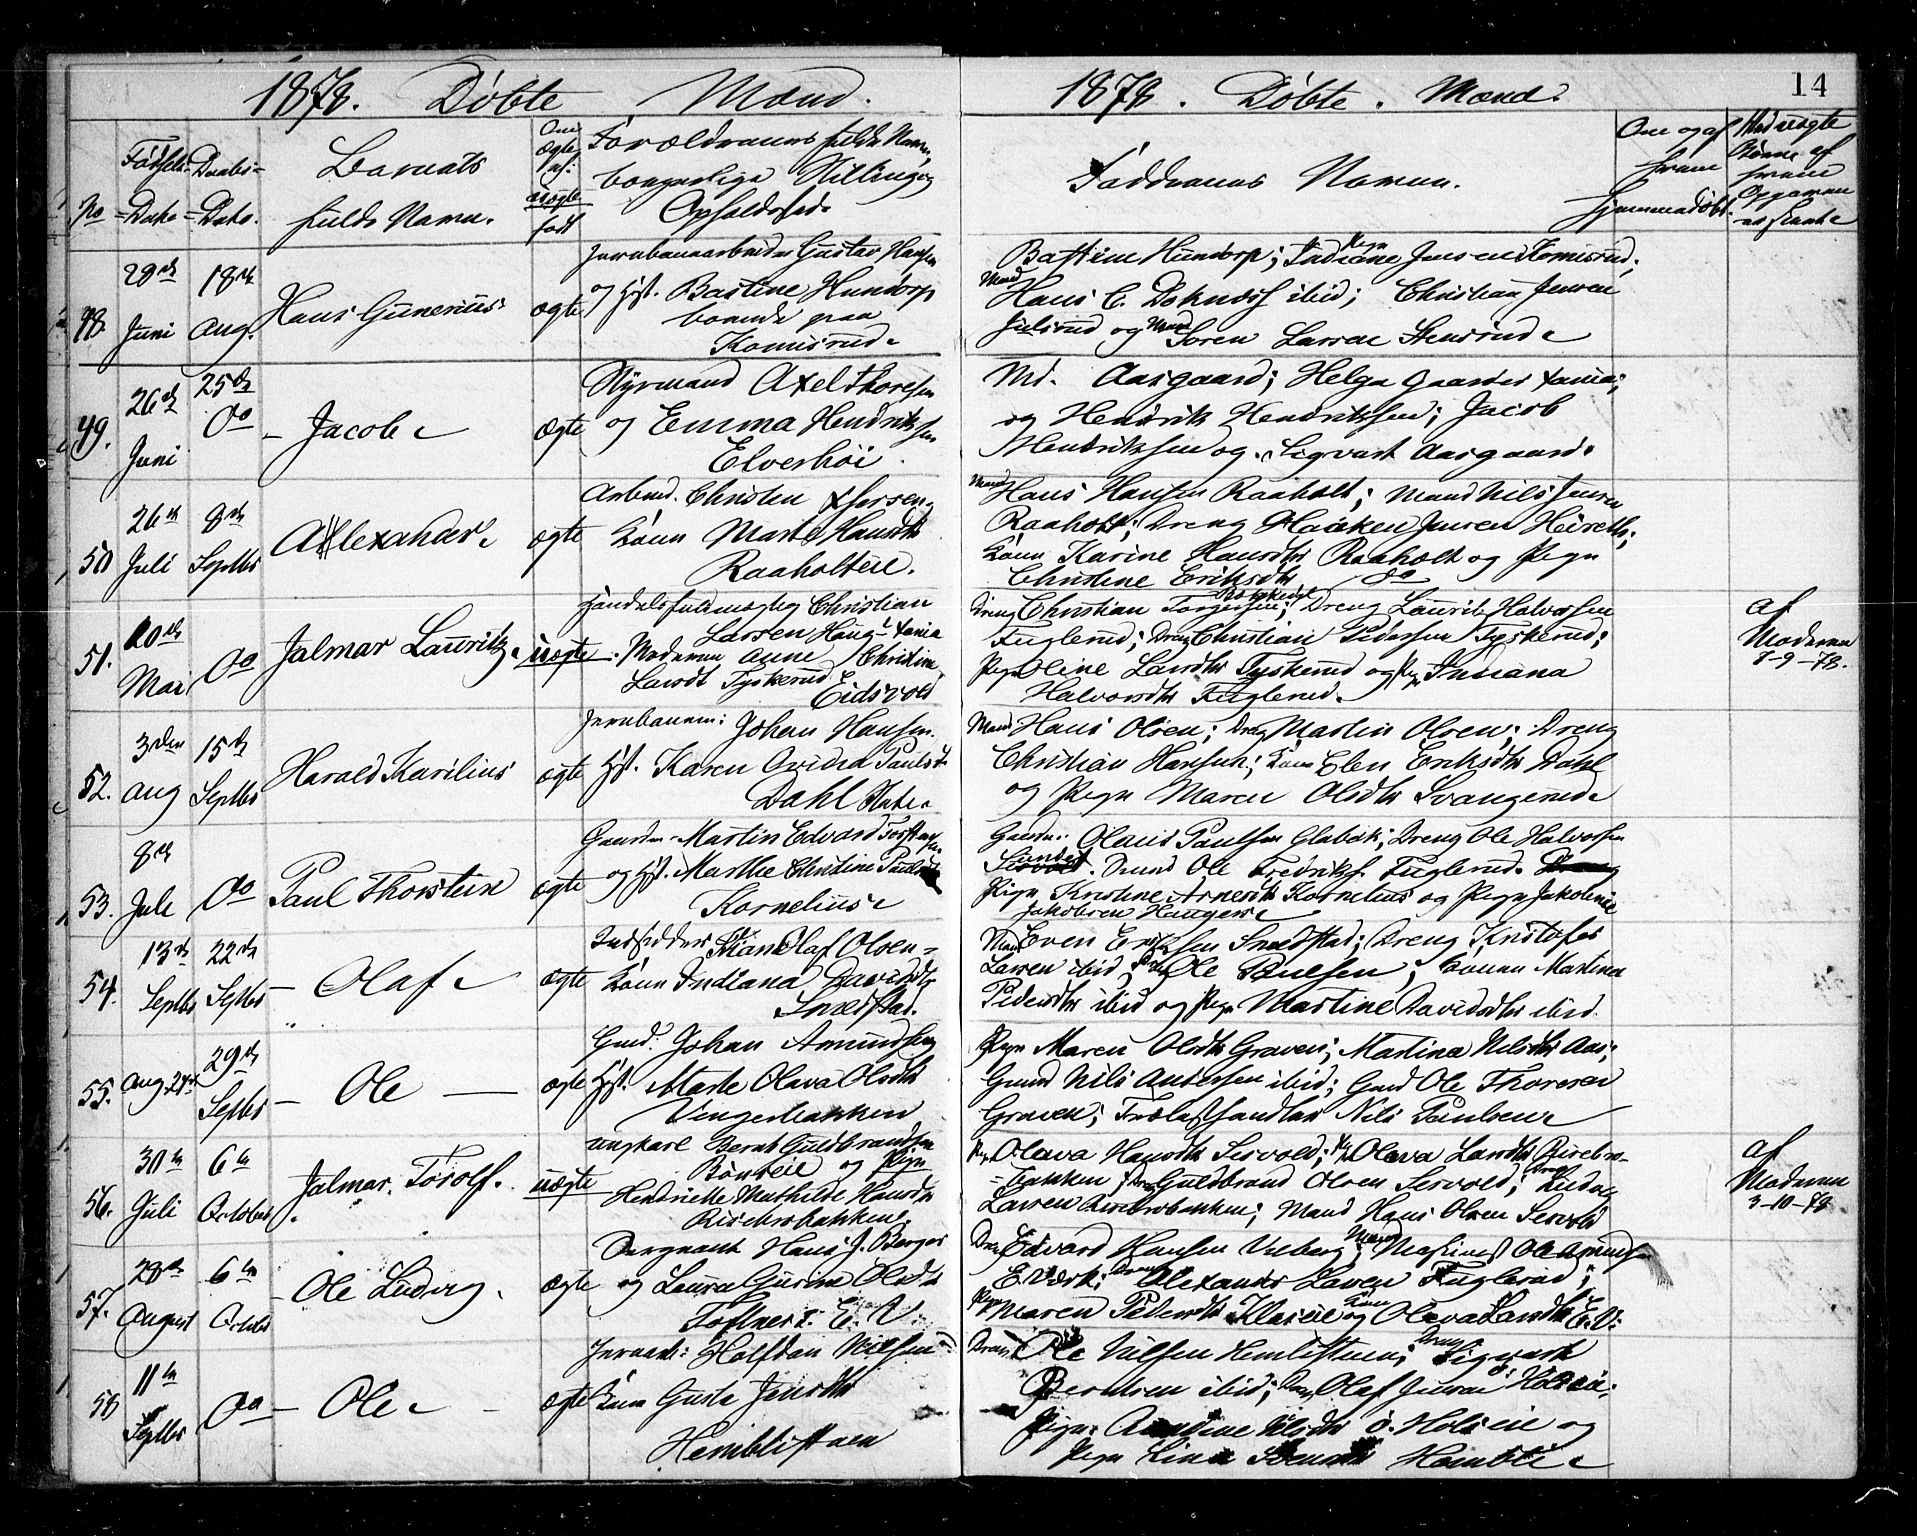 1878. Døbte Mænd.
1878. Døbte. Mænd.
14
No
Fødsels-Dato
Daabs-Dato.
Barnets fulde Navn.
Om ægte el: uægte født
Forældrenes fulde Navn, borgerlige Stilling og Opholdssted
Faddrenes Navne.
Om og af hvem hjemmedøbt.
Med uægte Børn af hvem Opgaven er skeet
48. 28de Juni
18de Aug.
Hans Gunerius
ægte
Jernbanearbeider Gustav Hansen
og Hst. Bastine Hundorp
boende paa
Komisrud
Bastine Hundorp; Pige Indiane Jensen Komisrud;
Mand Hans C. Doknæss ibid; Christian Jensen
Julsrud og Mand Søren Larsen Stensrud
49. 26de Juni
25de do
Jacob
ægte
Styrmand Axel Thoresen
og Emma Hendriksen
Elverhöi
Md. Aasgaard; Helga Gaarder Xania;
og Hendrik Hendriksen; Jacob
Hendriksen og Sigvart Aasgaard.
50 26de Juli
8de Septbr
Allexander
ægte
Arbeid. Christen Ifersen,
Kone Marte Hansdtr
Raaholteie.
Mand Hans Hansen Raaholt; Mand Nils Jensen
Raaholt; Dreng Haaken Jensen Heireth;
Kone Karine Hansdtr Raaholt og Pige
Christine Eriksdtr do
51. 10de Mai
do
Jalmar Lauritz
uægte
Handelsfuldmægtig Christian
Larsen Haug Xania
Moderen Anne Christine
Larsdt Tyskerud
Eidsvold
Dreng Christian Torgersen; Dreng Laurits Halvorsen
Fuglerud; Dreng Christian Pedersen Tyskerud;
Pige Oline Larsdtr Tyskerud og Pige Indiana
Halvorsdtr Fuglerud.
af Moderen
8-9-78.
52. 3die Aug
15de Septbr
Harald Karilius
ægte
Jernbanem: Johan Hansen.
Hst. Karen Ovidia Paulsdt
Dahl
Mand Hans Olsen; Dreng Martin Olsen; Dreng
Christian Hansen; Kone Elen Eriksdtr Dahl
og Pige Maren Olsdtr Svangerud
53. 8de Juli
do
Paul Thorstein
ægte
Gaardm. Martin Edvard Torstensen
og Hst. Marthe Christine Paulsdtr
Kornelius
Gaardm: Olaus Paulsen Glabak; Dreng Ole Halvorsen
Sundet. Ole Fredriks. Fuglerud.
Pige Kristine Arnesdtr Kornelius og Pige Jakobine
Jakobsen Hauger
54. 13de Septbr
22de Septbr
Olaf
ægte
Indsidder Stian Olaf Olsen
Kone Indiana Davidsdtr
Snedstad.
Mand Even Eriksen Snedstad; Dreng Kristofer
Larsen ibid; Ole Paulsen; Konen Martina
Pedersdtr ibid og Pige Martine Davidsdtr ibid.
55. Aug 24de
29de Septbr
Ole
ægte
Gmd. Johan Amundsen
Hst. Marte Olava Olsdtr
Vengerbakken
Pige Maren Olsdtr Graven; Martina Nilsdtr Aas;
Gmd Nils Andersen ibid; Gmd Ole Thoresen
Graven; Trælasthandler Nils Paulsen
56. 30te Juli
6te October
Jalmar Torolf.
uægte
Ungkarl Bernt Guldbrandsen
Bönseie og Pige
Henriette Mathilde Hansdtr
Risebrobakken.
Pige Olava Hansdtr Sesvold; Pige Olava Larsdtr Risebro-
bakken; Dreng Guldbrand Olsen Sesvold; Dreng Ludvig
Larsen Risebrobakken; Mand Hans Olsen Sesvold
af Moderen
3-10-78
57. 28de August
6te Octobr
Ole Ludvig.
ægte
Sergeant Hans J. Berger
og Laura Gurine Olsdtr
Toftner E. V.
Dreng Edvard Hansen Vilberg; Mand Maskinist Ole Amundsen
E. Værk; Dreng Alexander Larsen Fuglerud;
Pige Maren Pedersdtr og Kone Olava Larsdtr E.V.
58 11te Septbr
do
Ole
ægte
Jernarb: Halfdan Nilsen
Kone Gusta Jensdtr
Hemblistuen
Dreng Ole Nilsen Hemlistuen; Dreng Sigvart
Berntsen ibid; Dreng Olaf Jensen Holseie;
Pige Nilsdtr Ö. Holseie og
Pige Lina Hemble